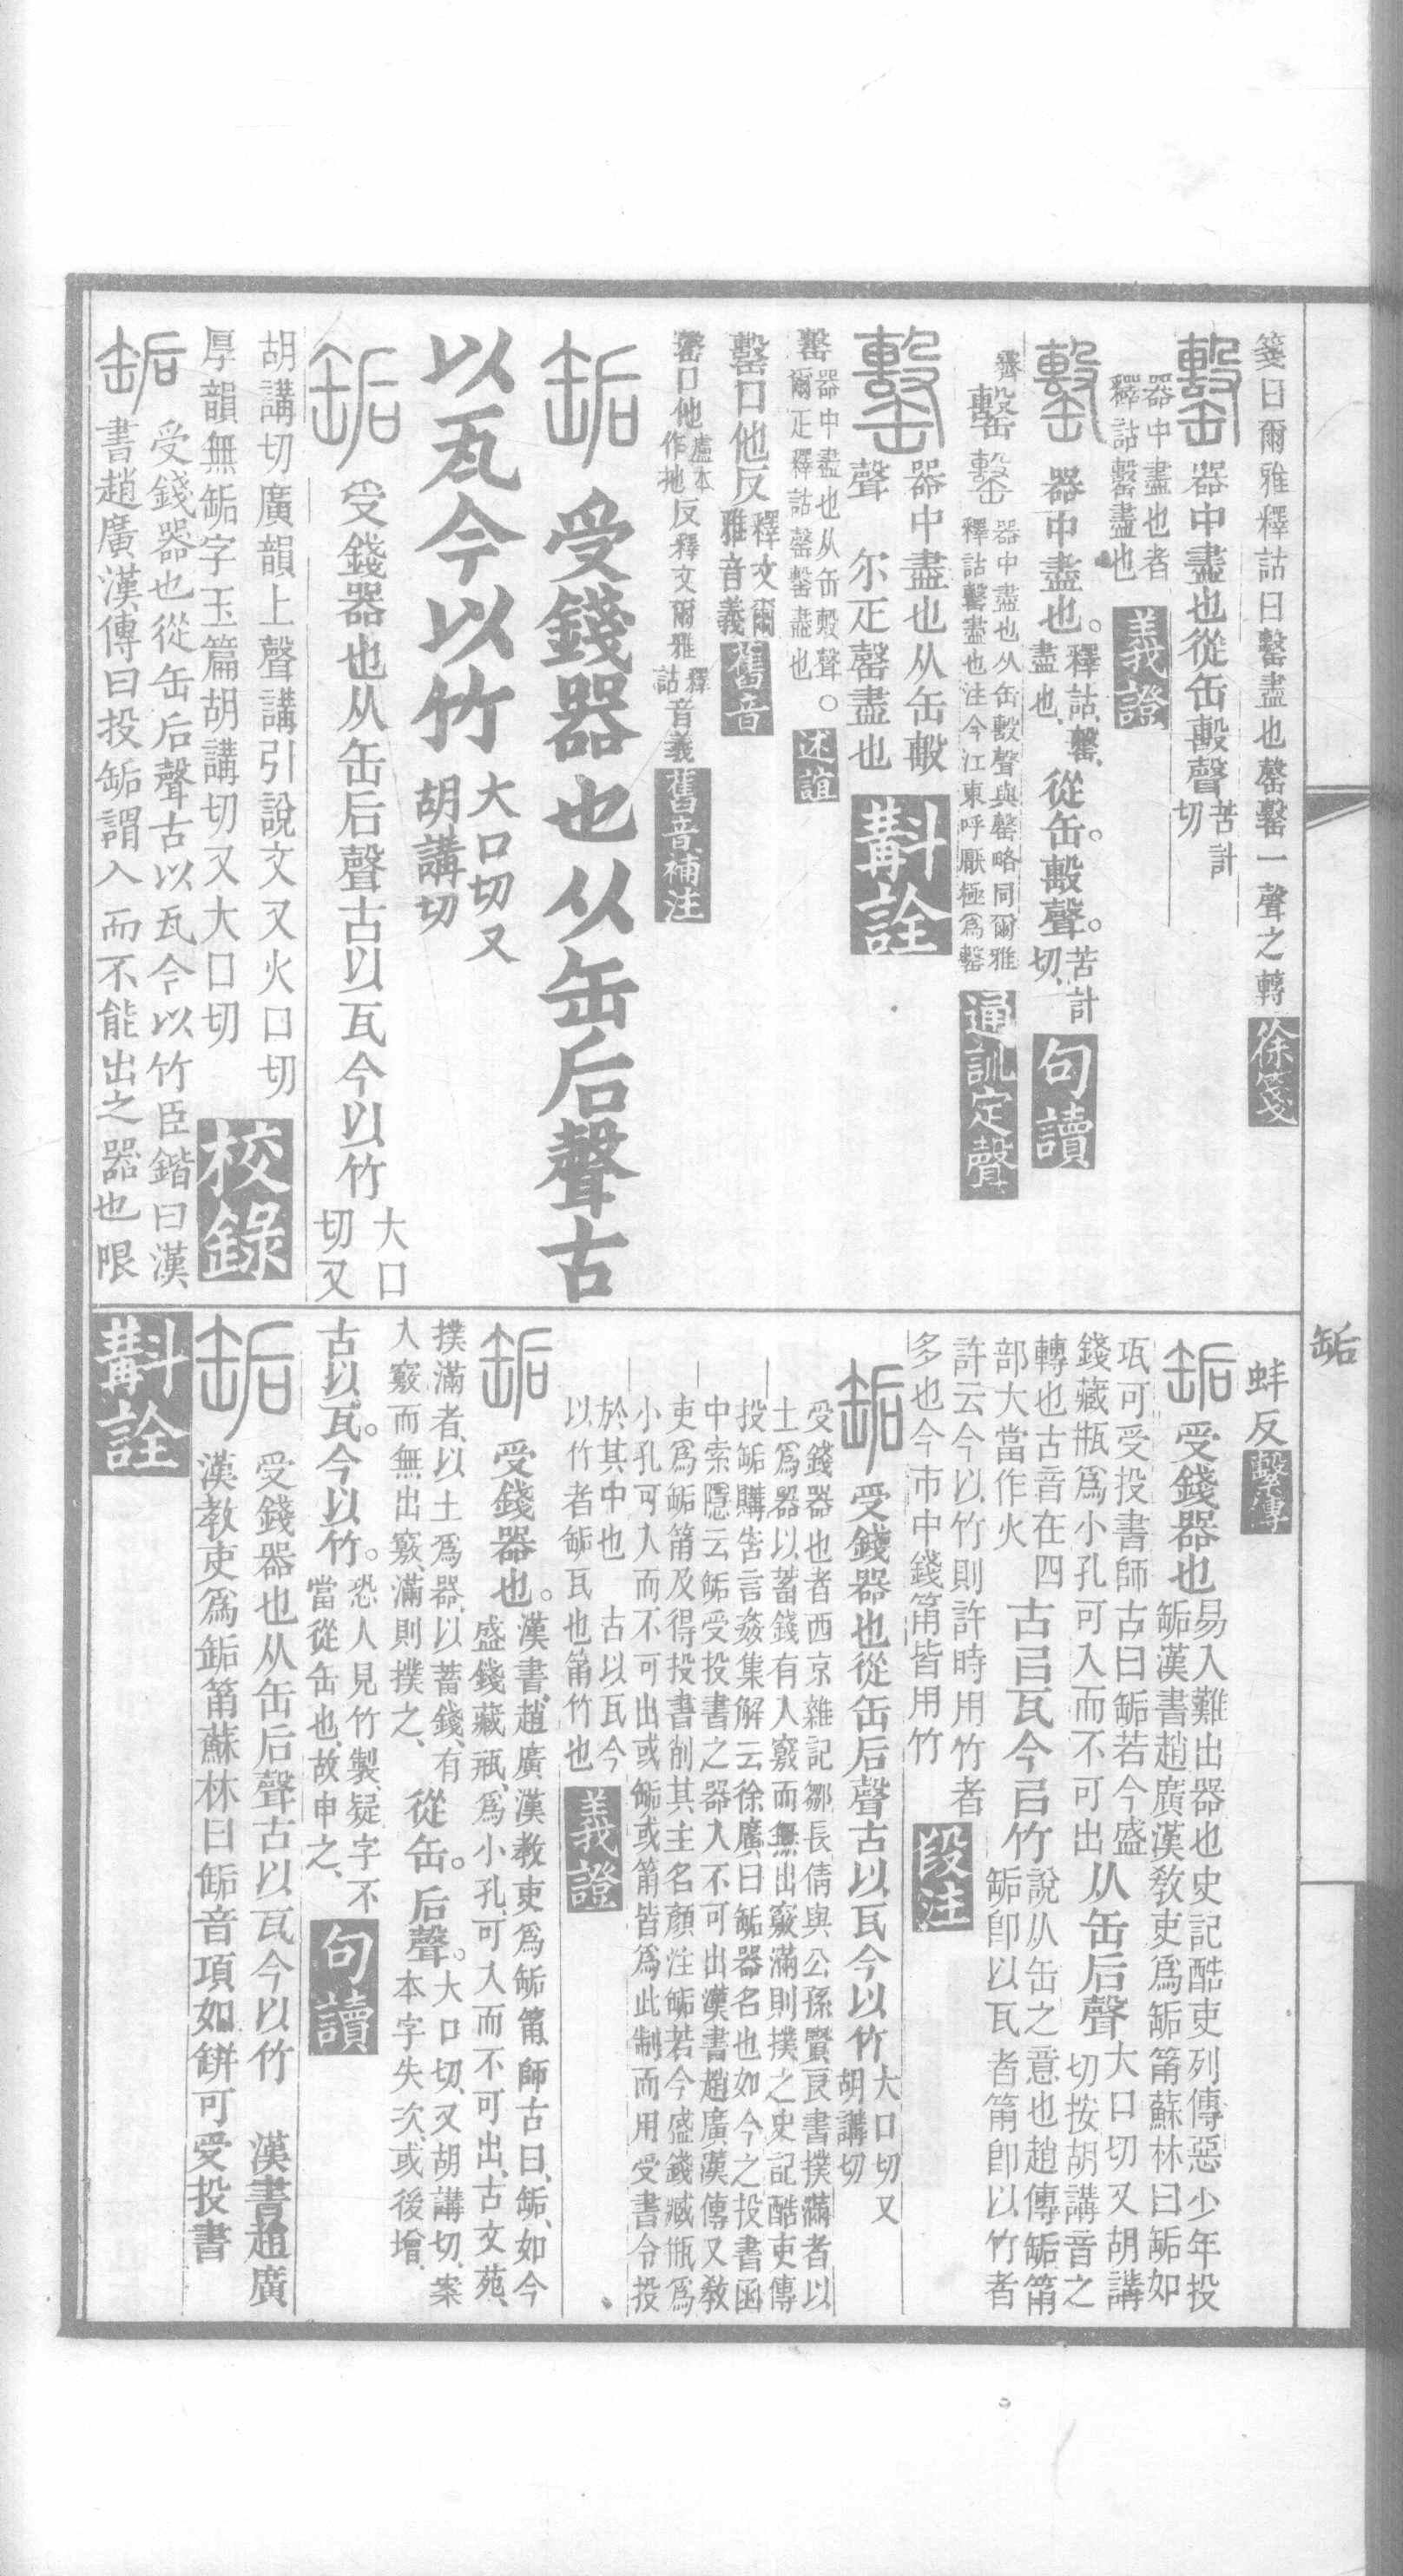 箋曰爾雅釋詁曰罊盡也罄罊一聲之轉 徐箋
罊 器中盡也從缶毄聲 苦計切
器中盡也者釋詁罊盡也 義證
罊 器中盡也。釋詁、罊、盡也、從缶。毄聲。苦計切、 句讀
罊 器中盡也从缶毄聲與罄略同爾雅釋詁罊盡也注今江東呼厭極爲罊 通訓定聲
罊 器中盡也从缶毄
聲 尔疋罄盡也 斠詮
罊 器中盡也从缶毄聲。爾疋釋詁罄罊盡也 述誼
罊口他反 釋文爾雅音義 舊音
罊口他 盧本作扡 反釋文爾雅 釋詁 音義 舊音補注
缿 受錢器也从缶后聲古
以瓦今以竹 大口切又胡講切
缿 受錢器也从缶后聲古以瓦今以竹 大口切又
胡講切廣韻上聲講引說文又火口切
厚韻無缿字玉篇胡講切又大口切 校錄
缿 受錢器也從缶后聲古以瓦今以竹臣鍇曰漢
書趙廣漢傳曰投缿謂入而不能出之器也限
缿
蚌反 繫傳
缿 受錢器也 易入難出器也史記酷吏列傳惡少年投缿漢書趙廣漢教吏爲缿筩蘇林曰缿如
瓨可受投書師古曰缿若今盛錢藏瓶爲小孔可入而不可出 从缶后聲 大口切又胡講切按胡講音之
轉也古音在四部大當作火 古㠯瓦今㠯竹 說从缶之意也趙傳缿筩缿卽以瓦者筩卽以竹者
許云今以竹則許時用竹者多也今市中錢筩皆用竹 段注
缿 受錢器也從缶后聲古以瓦今以竹 大口切又胡講切
受錢器也者西京雜記鄒長倩與公孫賢良書撲滿者以
土爲器以蓄錢有入竅而無出竅滿則撲之史記酷吏傳
投缿購告言姦集解云徐廣曰缿器名也如今之投書函
中索隱云缿受投書之器入不可出漢書趙廣漢傳又教
吏爲缿筩及得投書削其主名顏注缿若今盛錢臧瓶爲
小孔可入而不可出或缿或筩皆爲此制而用受書令投
於其中也 古以瓦今以竹者缿瓦也筩竹也 義證
缿 受錢器也。漢書、趙廣漢教吏爲缿筩、師古曰、缿、如今盛錢藏瓶、爲小孔、可入而不可出、古文苑、
撲滿者、以土爲器、以蓄錢、有入竅而無出竅、滿則撲之、 從缶。后聲。大口切、又胡講切、案本字失次、或後增、
古以瓦。今以竹。恐人見竹製、疑字不當從缶也、故申之、 句讀
缿 受錢器也从缶后聲古以瓦今以竹 漢書趙廣
漢教吏爲缿筩蘇林曰缿音項如缾可受投書
斠詮